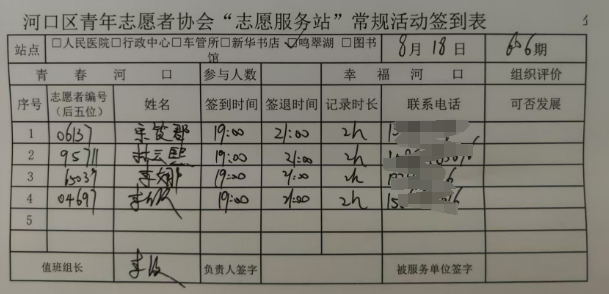 河口区青年志愿者协会“志愿服务站”常规活动签到表
站点 □人民医院□行政中心□车管所□新华书店☑鸣翠湖□图书馆 8月18日 606期
青春河口 参与人数 幸福河口 组织评价
序号 志愿者编号（后五位） 姓名 签到时间 签退时间 记录时长 联系电话 可否发展
1 06137 19:00 21:00 2h
2 95711 19:00 21:00 2h
3 65037 19:00 21:00 2h
4 04697 19:00 21:00 2h
5
值班组长 负责人签字 被服务单位签字